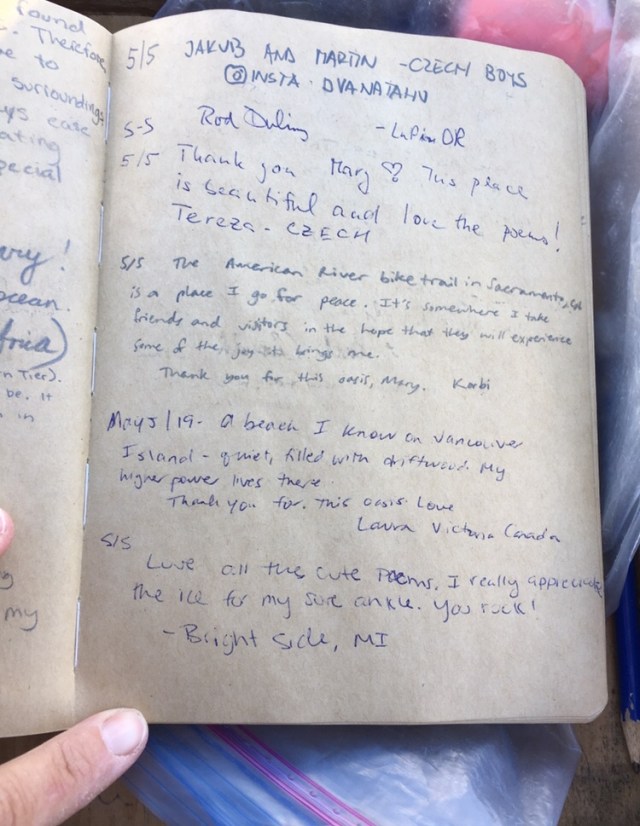 found
Therefore,
e to
surroundings
ys eate
ating
pecial
ry!
ocean.
fria)
n Tier).
be. It
in
my
5/5 JAKUB AND MARTIN - CZECH BOYS
INSTA. DVANATAHU
5-5 Rod - LaPine OR
5/5 Thank you Mary ♡ This place
is beautiful and love the poems!
Tereza - CZECH
5/5 The American River bike trail in Sacramento,
is a place I go for peace. It's somewhere I take
friends and visitors in the hope that they will experience
some of the joy it brings me.
Thank you for this oasis, Mary. Karbi
May 5/19 - A beach I know on Vancouver
Island - quiet, filled with driftwood. My
higher power lives there.
Thank you for. This oasis. Love
Laura Victoria Canada
5/5
Love all the cute Poems. I really appreciate
the ice for my sore ankle. You rock!
- Bright Side, MI